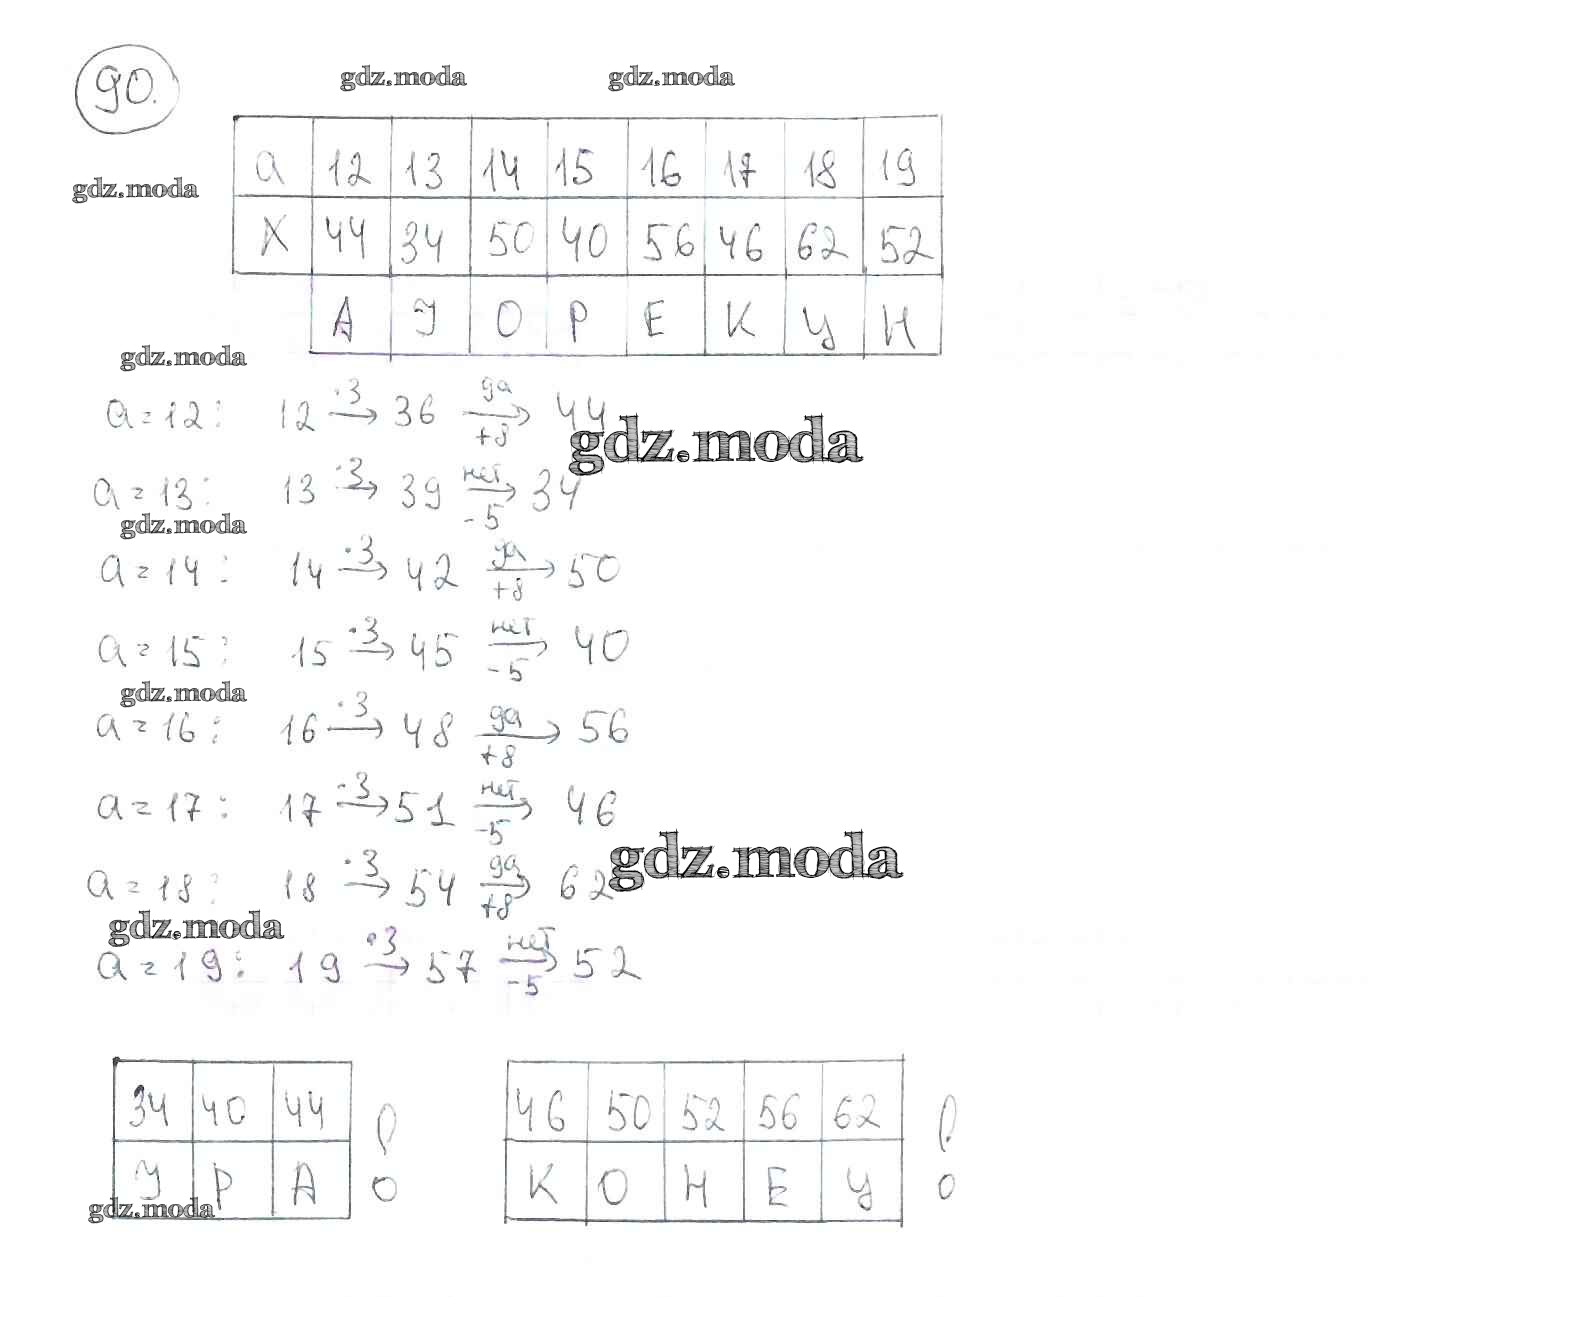 90.
gdz.moda gdz.moda
a 12 13 14 15 16 17 18 19
gdz.moda
x 44 34 50 40 56 46 62 52
А У О Р Е К Ц Н
gdz.moda
a = 12: 12 ·3→ 36 да +8→ 44
gdz.moda
a = 13: 13 ·3→ 39 нет -5→ 34
gdz.moda
a = 14: 14 ·3→ 42 да +8→ 50
a = 15: 15 ·3→ 45 нет -5→ 40
gdz.moda
a = 16: 16 ·3→ 48 да +8→ 56
a = 17: 17 ·3→ 51 нет -5→ 46
gdz.moda
a = 18: 18 ·3→ 54 да +8→ 62
gdz.moda
a = 19: 19 ·3→ 57 нет -5→ 52
34 40 44
У Р А !
gdz.moda
46 50 52 56 62
К О Н Е Ц !